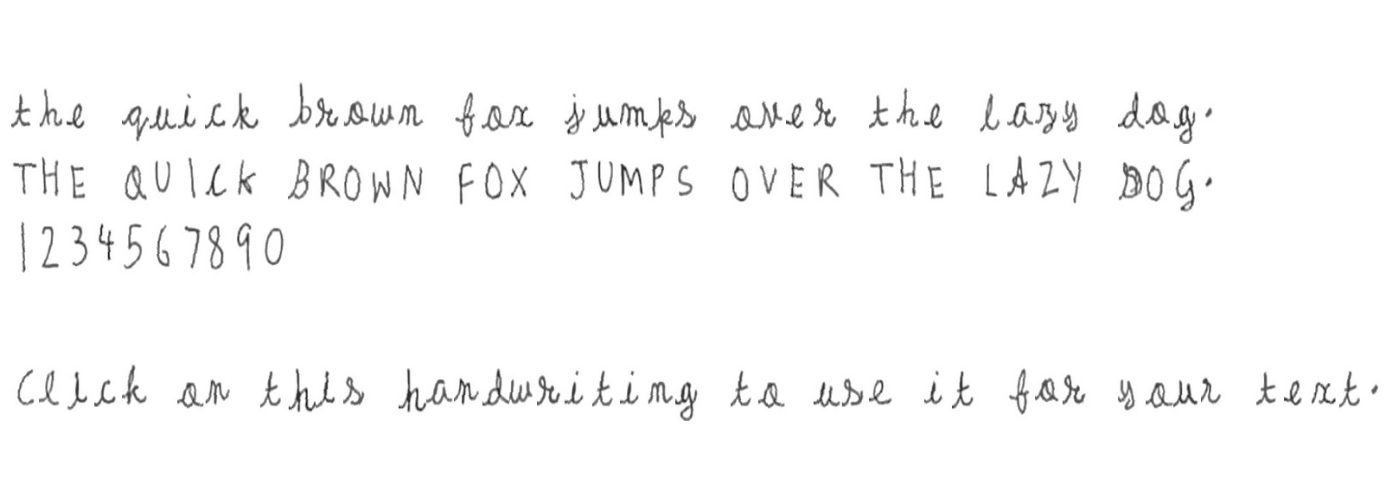 the quick brown fox jumps over the lazy dog.
THE QUICK BROWN FOX JUMPS OVER THE LAZY DOG.
1234567890
Click on this handwriting to use it for your text.